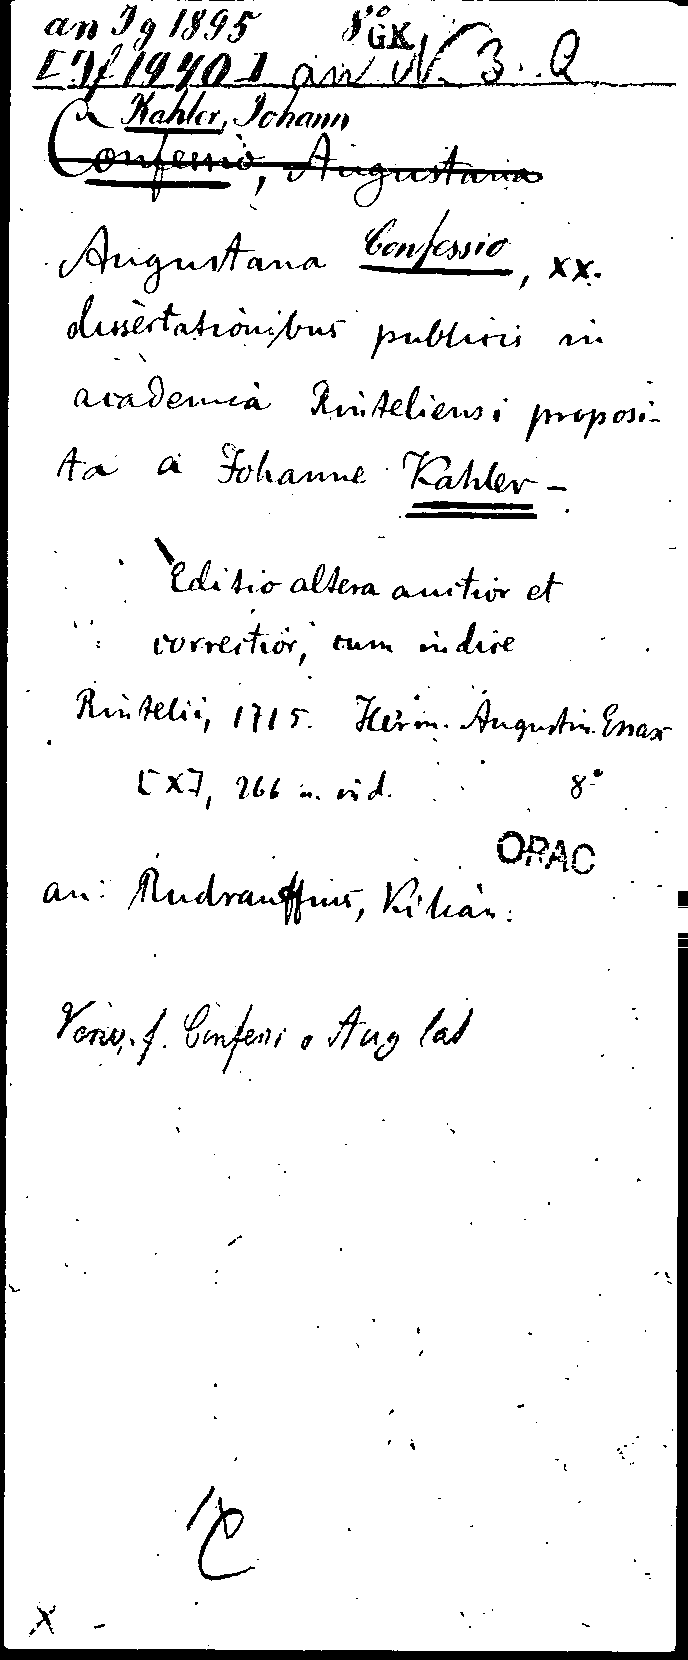 an Jg 1895 8° GK
[Jf 1940] an N. 3. Q
Kahler, Johann
Confessio, Augustana
Augustana Confessio, xx.
dissertationibus publicis in
academia Rinteliensi proposi-
ta a Johanne Kahler -
Editio altera auctior et
correctior, cum indice
Rintelii, 1715. Herm. Augustin. Enax
[X], 266 u. ind. 8°
OPAC
an: Rudrauffius, Kilian.
f. Confessio Aug lat
x